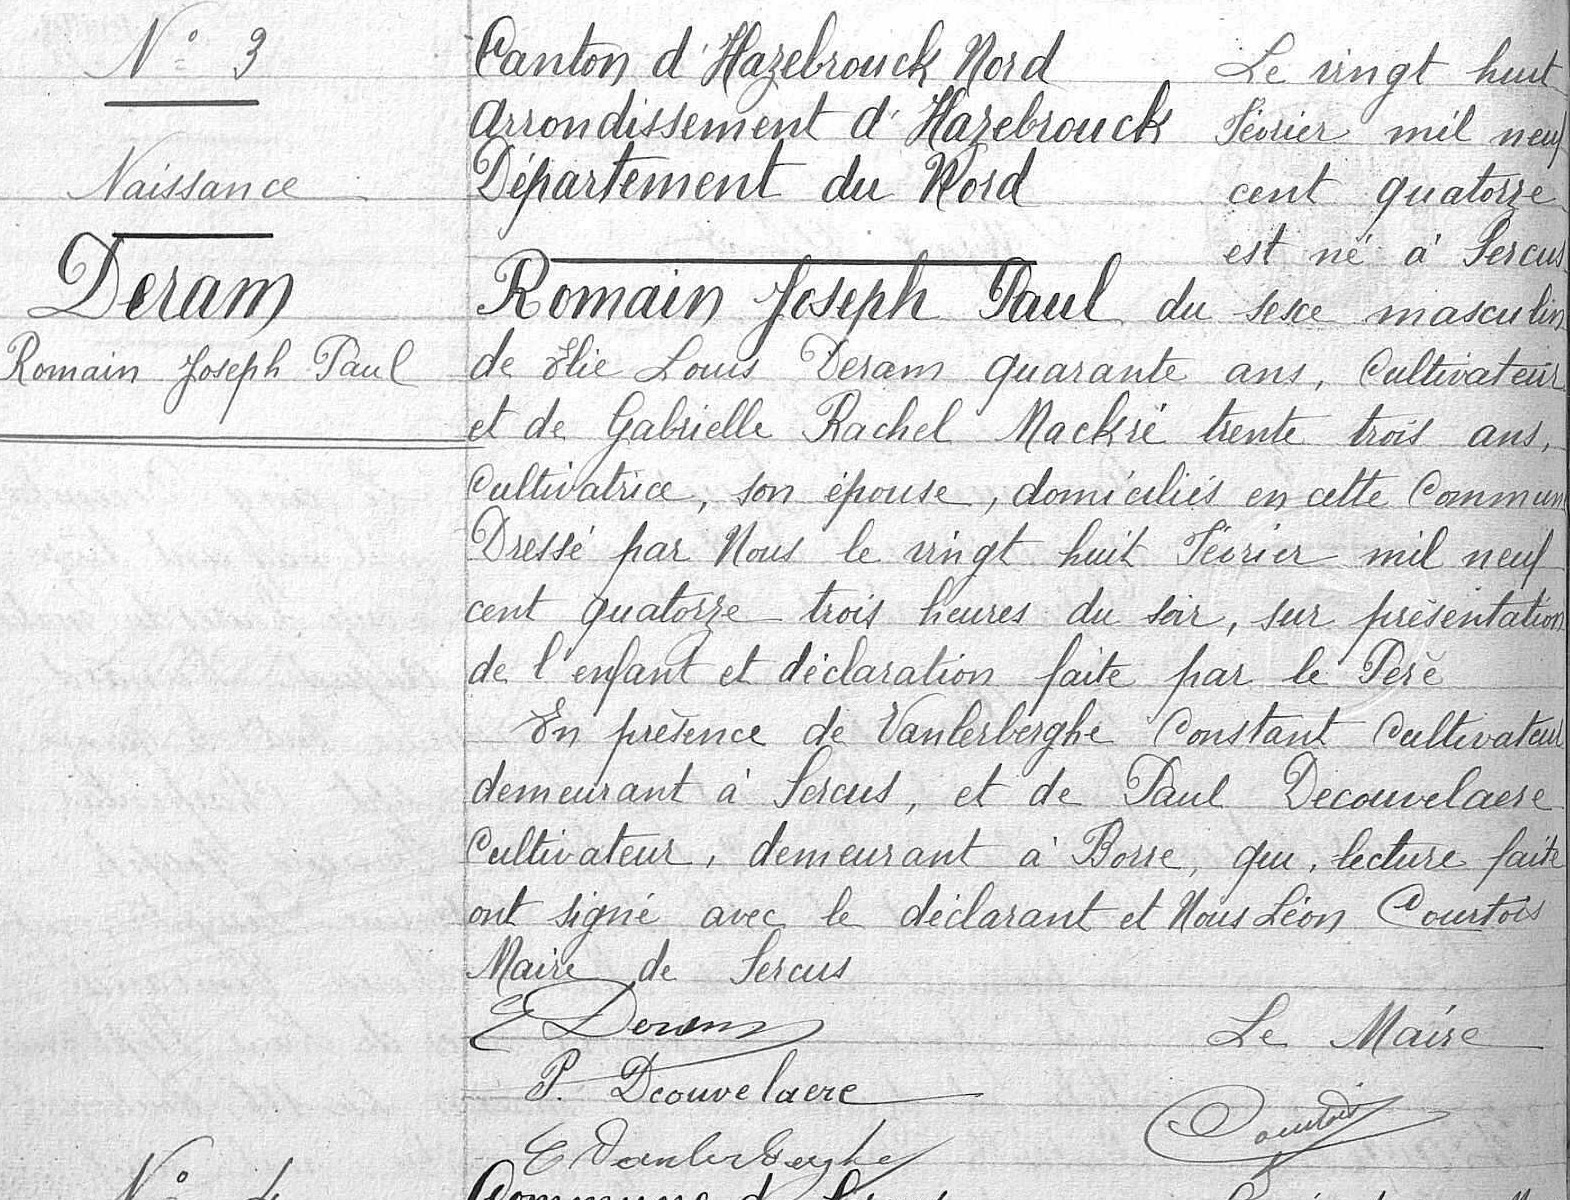 N° 3
Naissance
Deram
Romain Joseph Paul
Canton d'Hazebrouck Nord
Arrondissement d'Hazebrouck
Département du Nord
Le vingt huit
Février mil neuf
cent quatorze
est né à Sercus
Romain Joseph Paul du sexe masculin
de Elie Louis Deram quarante ans, Cultivateur
et de Gabrielle Rachel Mackré trente trois ans,
Cultivatrice, son épouse, domiciliés en cette Commun
Dressé par Nous le vingt huit Février mil neuf
cent quatorze trois heures du soir, sur présentation
de l'enfant et déclaration faite par le Père
En présence de Vanlerberghe Constant Cultivateur
demeurant à Sercus, et de Paul Decouvelaere
Cultivateur, demeurant à Borre, qui, lecture faite
ont signé avec le déclarant et Nous Léon Courtois
Maire de Sercus
E Deram
Le Maire
P. Dcouvelaere
Courtois
C Vanlerberghe
N° 4
Commune de